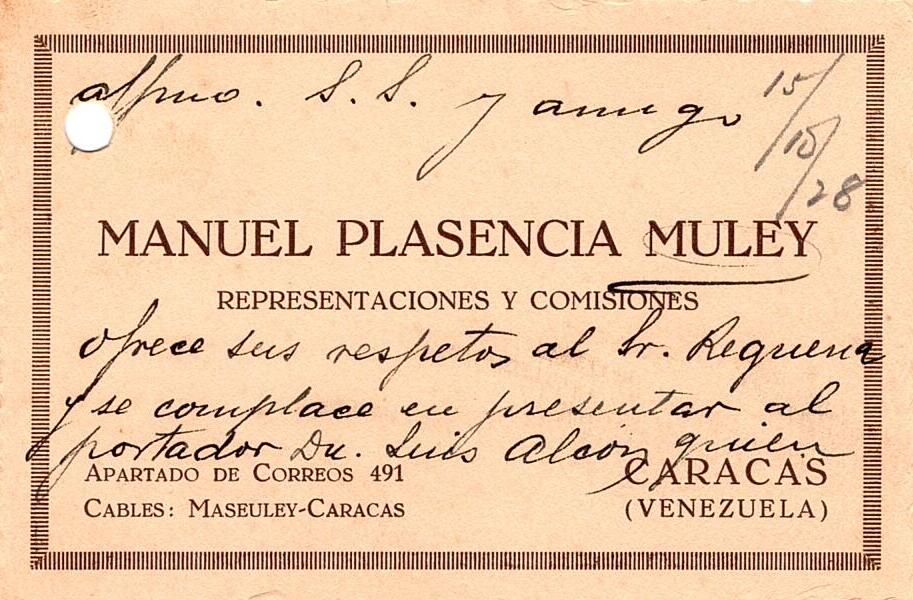 affmo. S. S. y amigo
15/10/28
MANUEL PLASENCIA MULEY
REPRESENTACIONES Y COMISIONES
ofrece sus respetos al Sr. Requena
y se complace en presentar al
portador Dn. Luis Alcón quien
APARTADO DE CORREOS 491
CARACAS
CABLES: MASEULEY-CARACAS
(VENEZUELA)